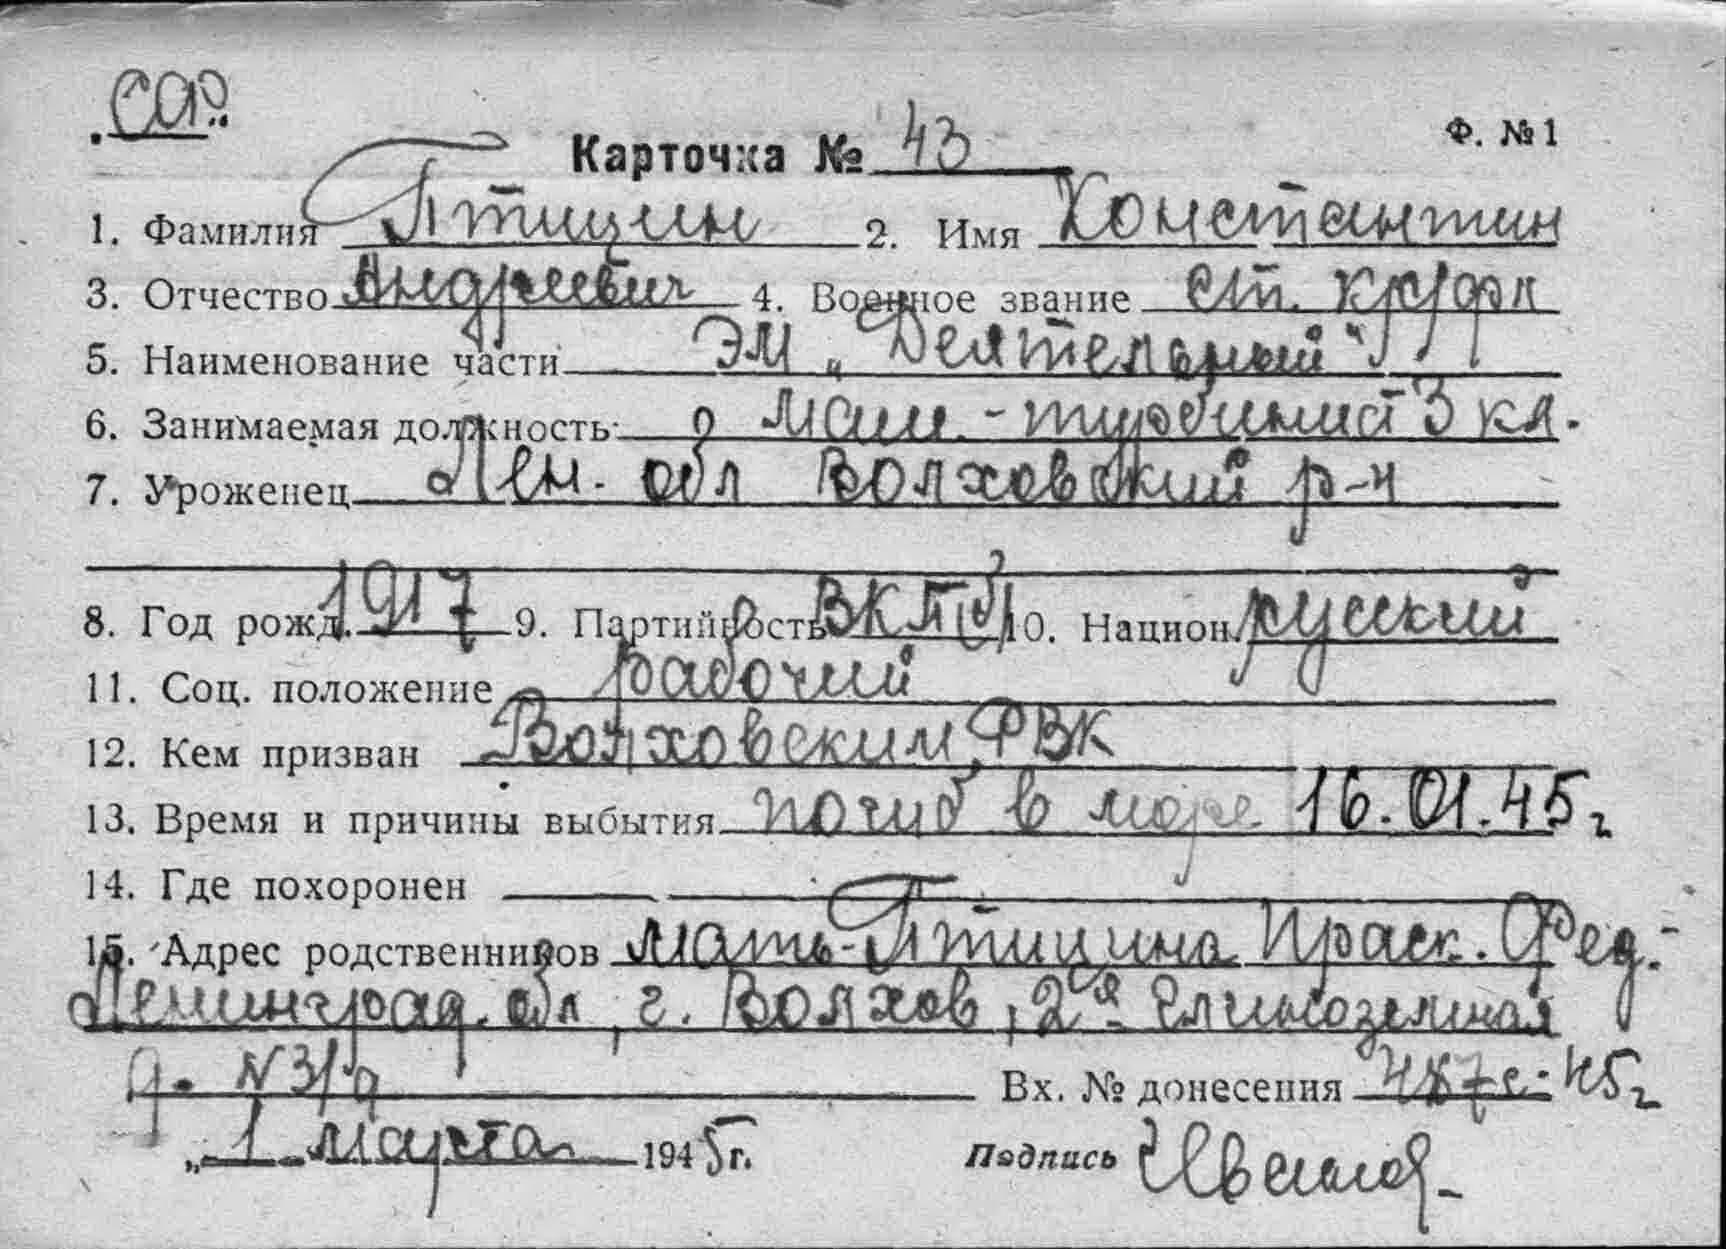 Ф. №1
Карточка № 43
1. Фамилия Птицин 2. Имя Константин
3. Отчество Андреевич 4. Военное звание ст. кр/фл
5. Наименование части ЭМ „Деятельный“
6. Занимаемая должность маш.-турбинист 3 кл.
7. Уроженец Лен. обл Волховский р-н
8. Год рожд. 1917 9. Партийность ВКП(б) 10. Национ. русский
11. Соц. положение рабочий
12. Кем призван Волховским РВК
13. Время и причины выбытия погиб в море 16.01.45 г
14. Где похоронен
15. Адрес родственников мать-Птицина Праск. Фед.-
Ленинград. обл, г. Волхов, 2я
д. N 3/9
Вх. № донесения 45 г
„ 1 марта 1945 г.
Подпись